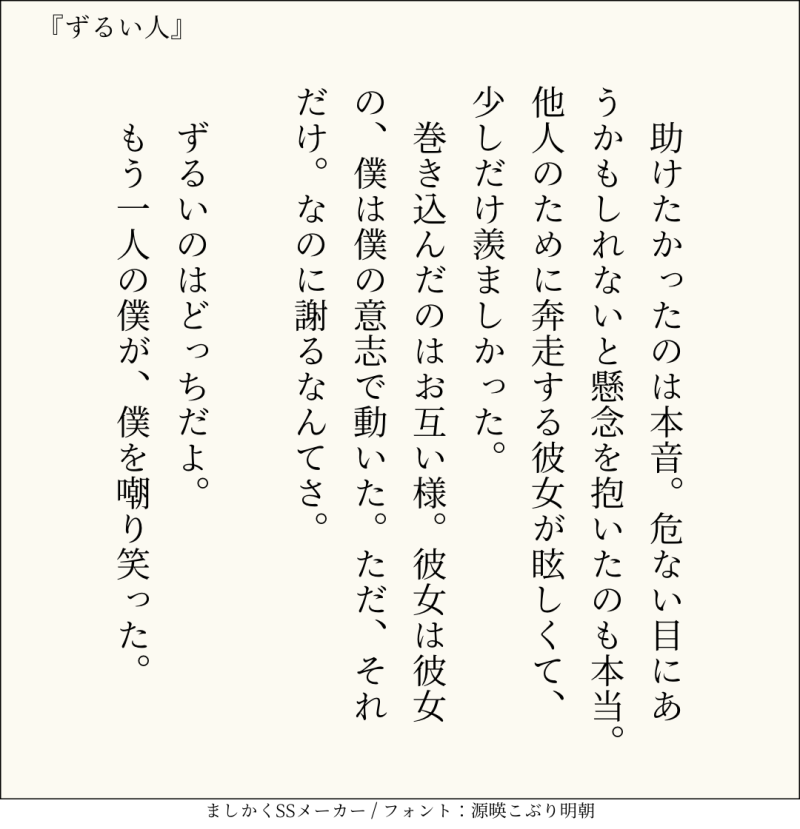 『ずるい人』
　助けたかったのは本音。危ない目にあ
うかもしれないと懸念を抱いたのも本当。
他人のために奔走する彼女が眩しくて、
少しだけ羨ましかった。
　巻き込んだのはお互い様。彼女は彼女
の、僕は僕の意志で動いた。ただ、それ
だけ。なのに謝るなんてさ。
　ずるいのはどっちだよ。
　もう一人の僕が、僕を嘲り笑った。
ましかくSSメーカー / フォント：源暎こぶり明朝